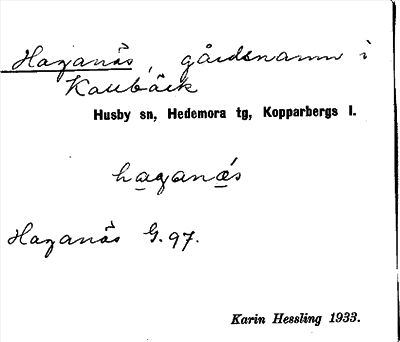 Haganäs, gårdsnamn i
Kallbäck
Husby sn, Hedemora tg, Kopparbergs l.
haganǽs
Haganäs G. 97.
Karin Hessling 1933.